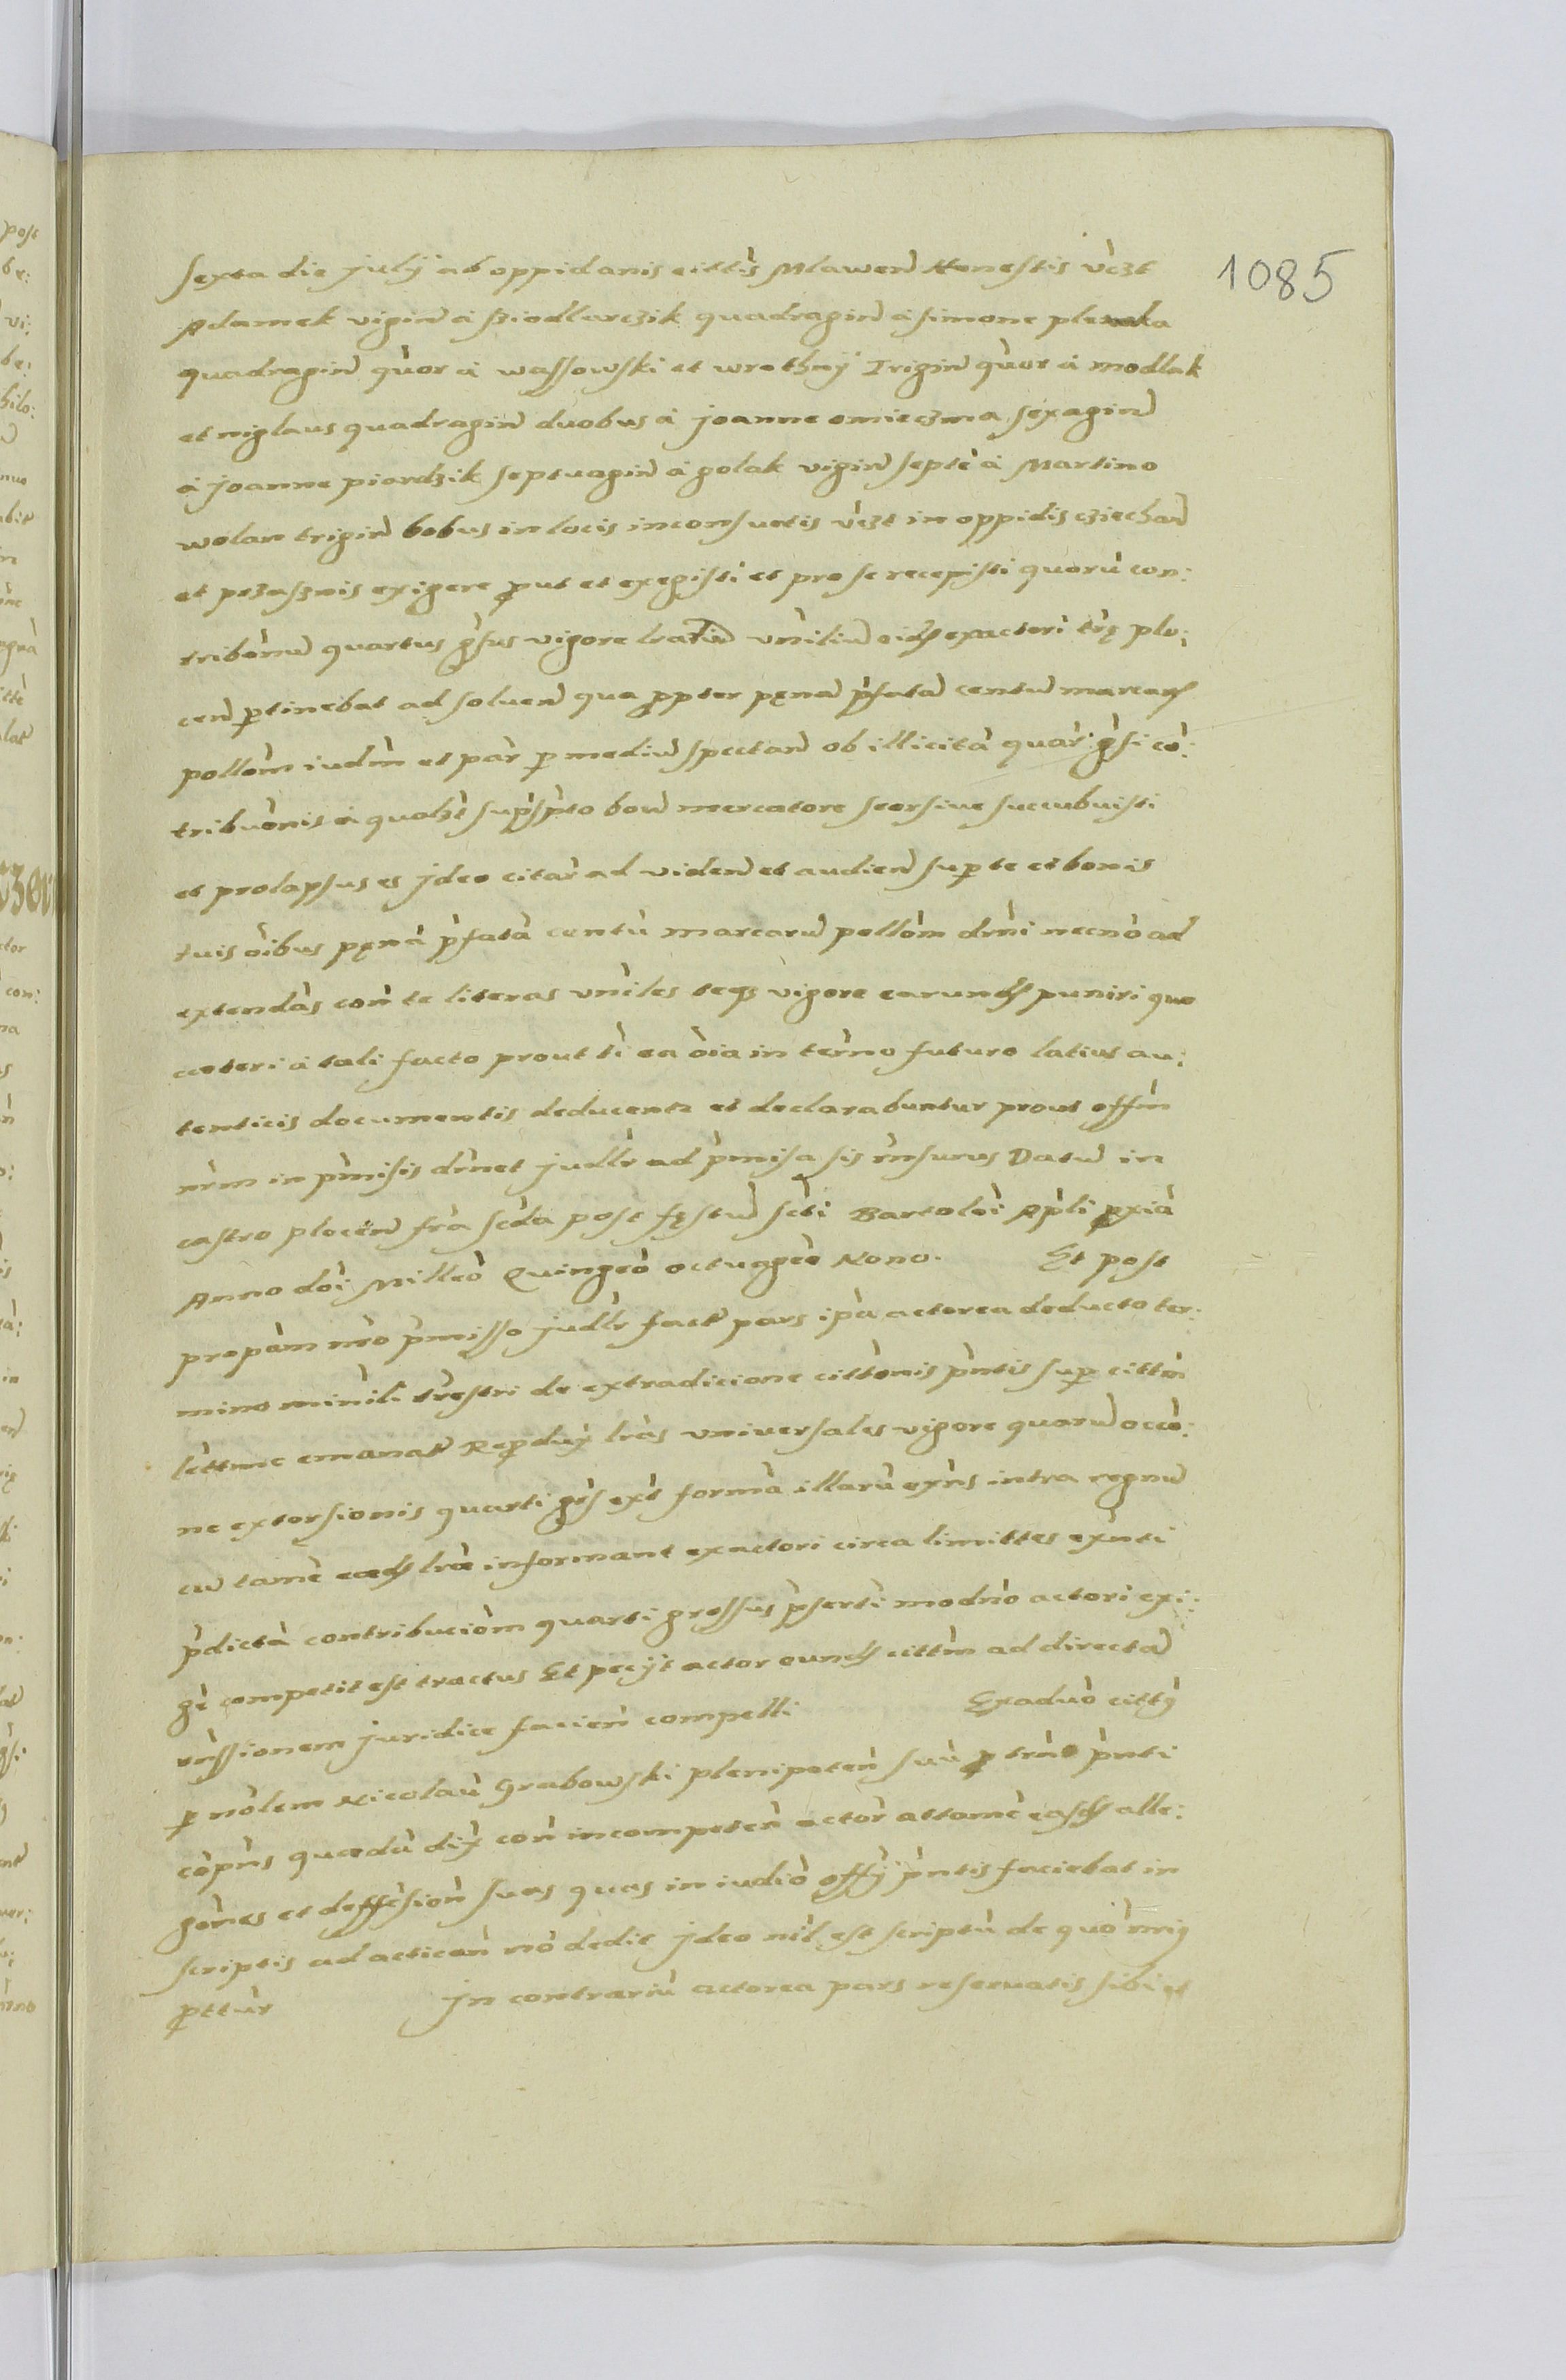 1085
Sexta die Julÿ ab oppidanis cittis Mlawen Honestis vczt
Adamek vigin á Sziodllarczik quadragin á simone
quadragin quor á wassowski et wrothnÿ Trigin quor á modlak
et niglaus quadragin duobus á Joanne omieczma sexagin
á Joanne piardzik septuagin á golak vigin septe á Martino
wolan trigin bobus in locis inconsuetis vczt in oppidis cziechan
et przasznis exigere put et exegisti et pro se recepisti quoru con:
tribonu quartus gsus vigore lrarum vniliu eids exactori trę plo:
cen ptinebat ad soluen qua ppter pęna pfata centu marcars
pollom iudm et par p mediu spectan ob illicita quar gsi co:
tribuonis á quolzt supspto bou mercatore seorsiue succubuisti
et prolapsus es Jdeo citar ad viden et audien sup te et bonis
tuis oibus pęna pfata centu marcaru pollom drni necno ad
extendas con te literas vniles teqz vigore earunds puniri quo
cœteri á tali facto prout ti ea oia in terno futuro latius au:
tenticis documentis deducentr et declarabuntur prout offm
nrm in pmisis drnet judllr ad pmisa sis rnsurus Datu in
castro plocen fra scda post fęstu scti Bartoloi Apli pxia
Anno doi Milleo Quingeo octuageo Nono. Et post
propam nro pmisso judllr fact pars ipa actorea deducto ter:
mino minili trestri de extradicione cittonis pntis sup cittm
lettme emanat Repdux lras vniversales vigore quaru occo:
ne extorsionis quarti grs ext forma illaru exns intra regnu
cu tame eœds lræ informant exactori circa limittes exnti
pdicta contribuciom quarti grossus pserti modno actori exi:
ge competit est tractus Et pecÿt actor eunds cittm ad directa
rnssionem juridice facien compelli Exaduo cittÿ
p nolem Nicolau Grabowski plenipoten suu p trno pnti
copns quædu dix con incompeten actor attame easds alle:
gones et deffesion suas quas in iudio offÿ pntis faciebat in
scriptis ad actican no dedit Jdeo nil est scriptu de quo mig
pttur Jn contrariu actorea pars reseruatis sibi et